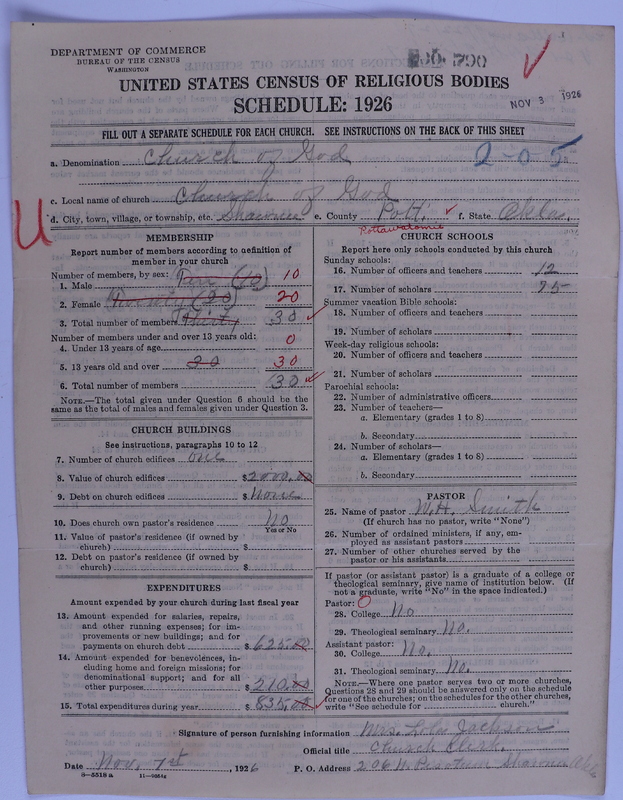 DEPARTMENT OF COMMERCE
BUREAU OF THE CENSUS
WASHINGTON
UNITED STATES CENSUS OF RELIGIOUS BODIES
SCHEDULE: 1926
NOV 3 1926
FILL OUT A SEPARATE SCHEDULE FOR EACH CHURCH. SEE INSTRUCTIONS ON THE BACK OF THIS SHEET
a. Denomination Church of God 2-0-5
c. Local name of church Church of God
U
d. City, town, village, or township, etc. Shawnee e. County Pott. f. State Okla.
Pottawatomie
MEMBERSHIP
Report number of members according to definition of member in your church
Number of members, by sex:
1. Male Ten (10) 10
2. Female Twenty (20) 20
3. Total number of members Thirty 30
Number of members under and over 13 years old:
4. Under 13 years of age 0
5. 13 years old and over 30 30
6. Total number of members 30
NOTE.—The total given under Question 6 should be the same as the total of males and females given under Question 3.
CHURCH BUILDINGS
See instructions, paragraphs 10 to 12
7. Number of church edifices one
8. Value of church edifices $2000.00
9. Debt on church edifices $ None
10. Does church own pastor's residence? No
Yes or No
11. Value of pastor's residence (if owned by church) $
12. Debt on pastor's residence (if owned by church) $
EXPENDITURES
Amount expended by your church during last fiscal year
13. Amount expended for salaries, repairs, and other running expenses; for improvements or new buildings; and for payments on church debt $625.00
14. Amount expended for benevolences, including home and foreign missions; for denominational support; and for all other purposes $210.00
15. Total expenditures during year $835.00
CHURCH SCHOOLS
Report here only schools conducted by this church
Sunday schools:
16. Number of officers and teachers 12
17. Number of scholars 75
Summer vacation Bible schools:
18. Number of officers and teachers
19. Number of scholars
Week-day religious schools:
20. Number of officers and teachers
21. Number of scholars
Parochial schools:
22. Number of administrative officers
23. Number of teachers—
a. Elementary (grades 1 to 8)
b. Secondary
24. Number of scholars—
a. Elementary (grades 1 to 8)
b. Secondary
PASTOR
25. Name of pastor W.H. Smith
(If church has no pastor, write "None")
26. Number of ordained ministers, if any, employed as assistant pastors
27. Number of other churches served by the pastor or his assistants
If pastor (or assistant pastor) is a graduate of a college or theological seminary, give name of institution below. (If not a graduate, write "No" in the space indicated.)
Pastor: 0
28. College No
29. Theological seminary No.
Assistant pastor:
30. College No.
31. Theological seminary No.
NOTE.—Where one pastor serves two or more churches, Questions 28 and 29 should be answered only on the schedule for one of the churches; on the schedules for the other churches, write "See schedule for church."
Signature of person furnishing information Mrs. Lela Jackson
Official title Church Clerk.
Date Nov. 1st, 1926 P. O. Address 206 N. Shawnee Okla
8—5518 a